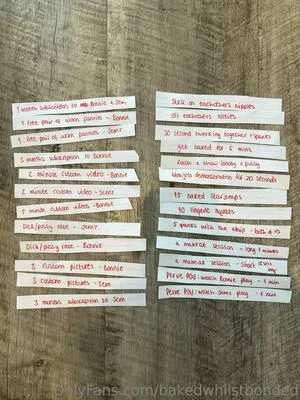 1 month subscriptions to Bonnie & Jem
1 free pair of worn panties - Bonnie
1 free pair of worn panties - Jemz
3 months subscription to Bonnie
2 minute custom video - Bonnie
2 minute custom video - Jemz
5 minute custom videos - Bonnie
Dick/pussy rate - Jemz
Dick/pussy rate - Bonnie
3 custom pictures - Bonnie
3 custom pictures - Jem
3 months subscription to Jem
Suck on eachothers nipples
Oil eachothers titties
30 second twerking together + spanks
get naked for 5 mins
flash & show booty & pussy
blowjob demonstration for 20 seconds
15 naked starjumps
10 lingerie squats
5 spanks with the whip - both of us
a makeout session - long 1 minute
a makeout session - short 15 secs
Perve POV: watch Bonnie play - 1 min
Perve POV: watch Jemz play - 1 min
OnlyFans.com/bakedwhilstbonded